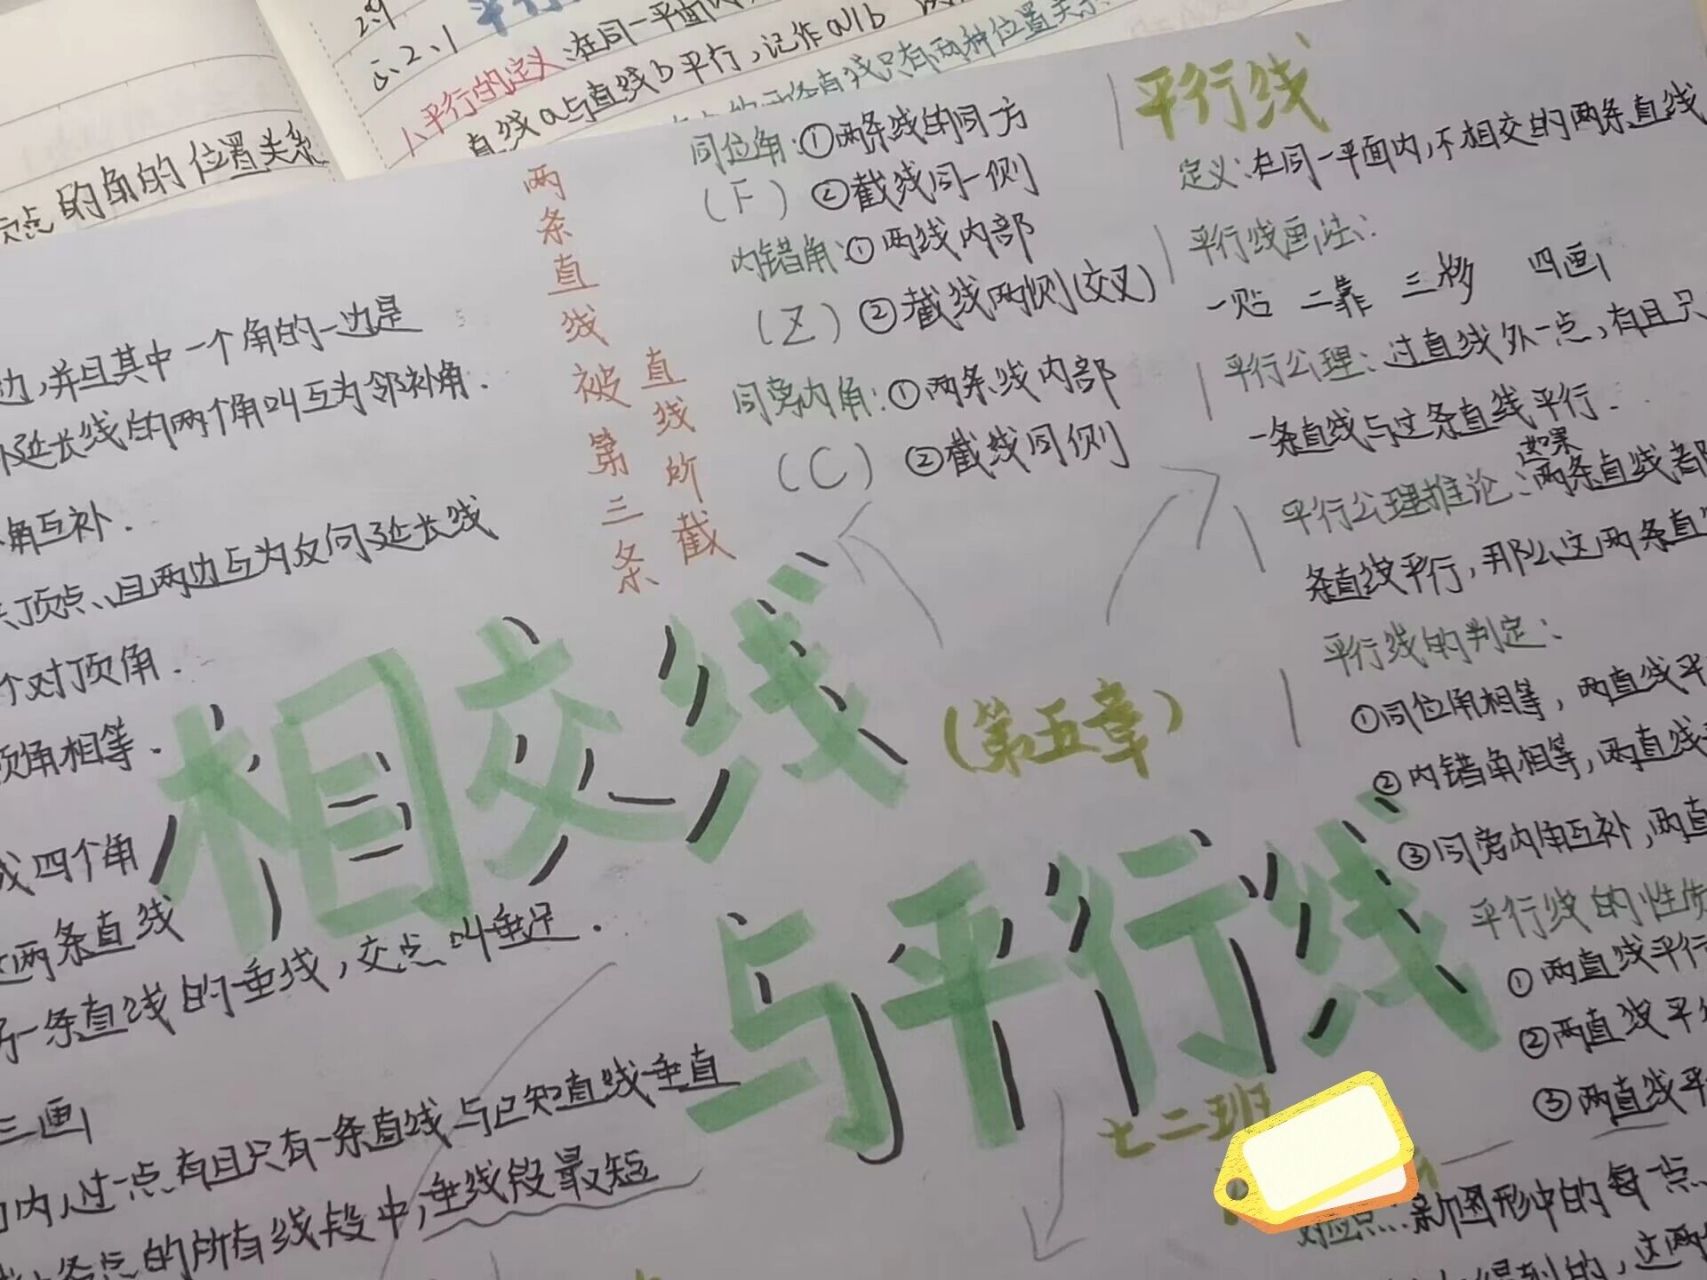 5.2.1 平行
1、平行的定义:在同一平面内,
直线a与直线b平行,记作a∥b
两条直线只有两种位置关系
的角的位置关系
两条直线被第三条
直线所截
同位角:①两条线的同方
(F) ②截线同一侧
内错角:①两线内部
(Z) ②截线两侧(交叉)
同旁内角:①两条线内部
(C) ②截线同侧
平行线
定义:在同一平面内,不相交的两条直线
平行线画法:
一贴 二靠 三移 四画
平行公理:过直线外一点,有且只
一条直线与这条直线平行.
平行公理推论:如果两条直线都
条直线平行,那么这两条直
平行线的判定:
①同位角相等,两直线平
②内错角相等,两直线
③同旁内角互补,两直
平行线的性质
①两直线平行
②两直线平
③两直线平
边,并且其中一个角的一边是
延长线的两个角叫互为邻补角.
角互补.
顶点、且两边互为反向延长线
个对顶角.
顶角相等.
成四个角
两条直线
另一条直线的垂线,交点叫垂足.
三画
内,过一点有且只有一条直线与已知直线垂直
点的所有线段中,垂线段最短
相交线
(第五章)
与平行线
七二班
对应点:新图形中的每一点
得到的,这两